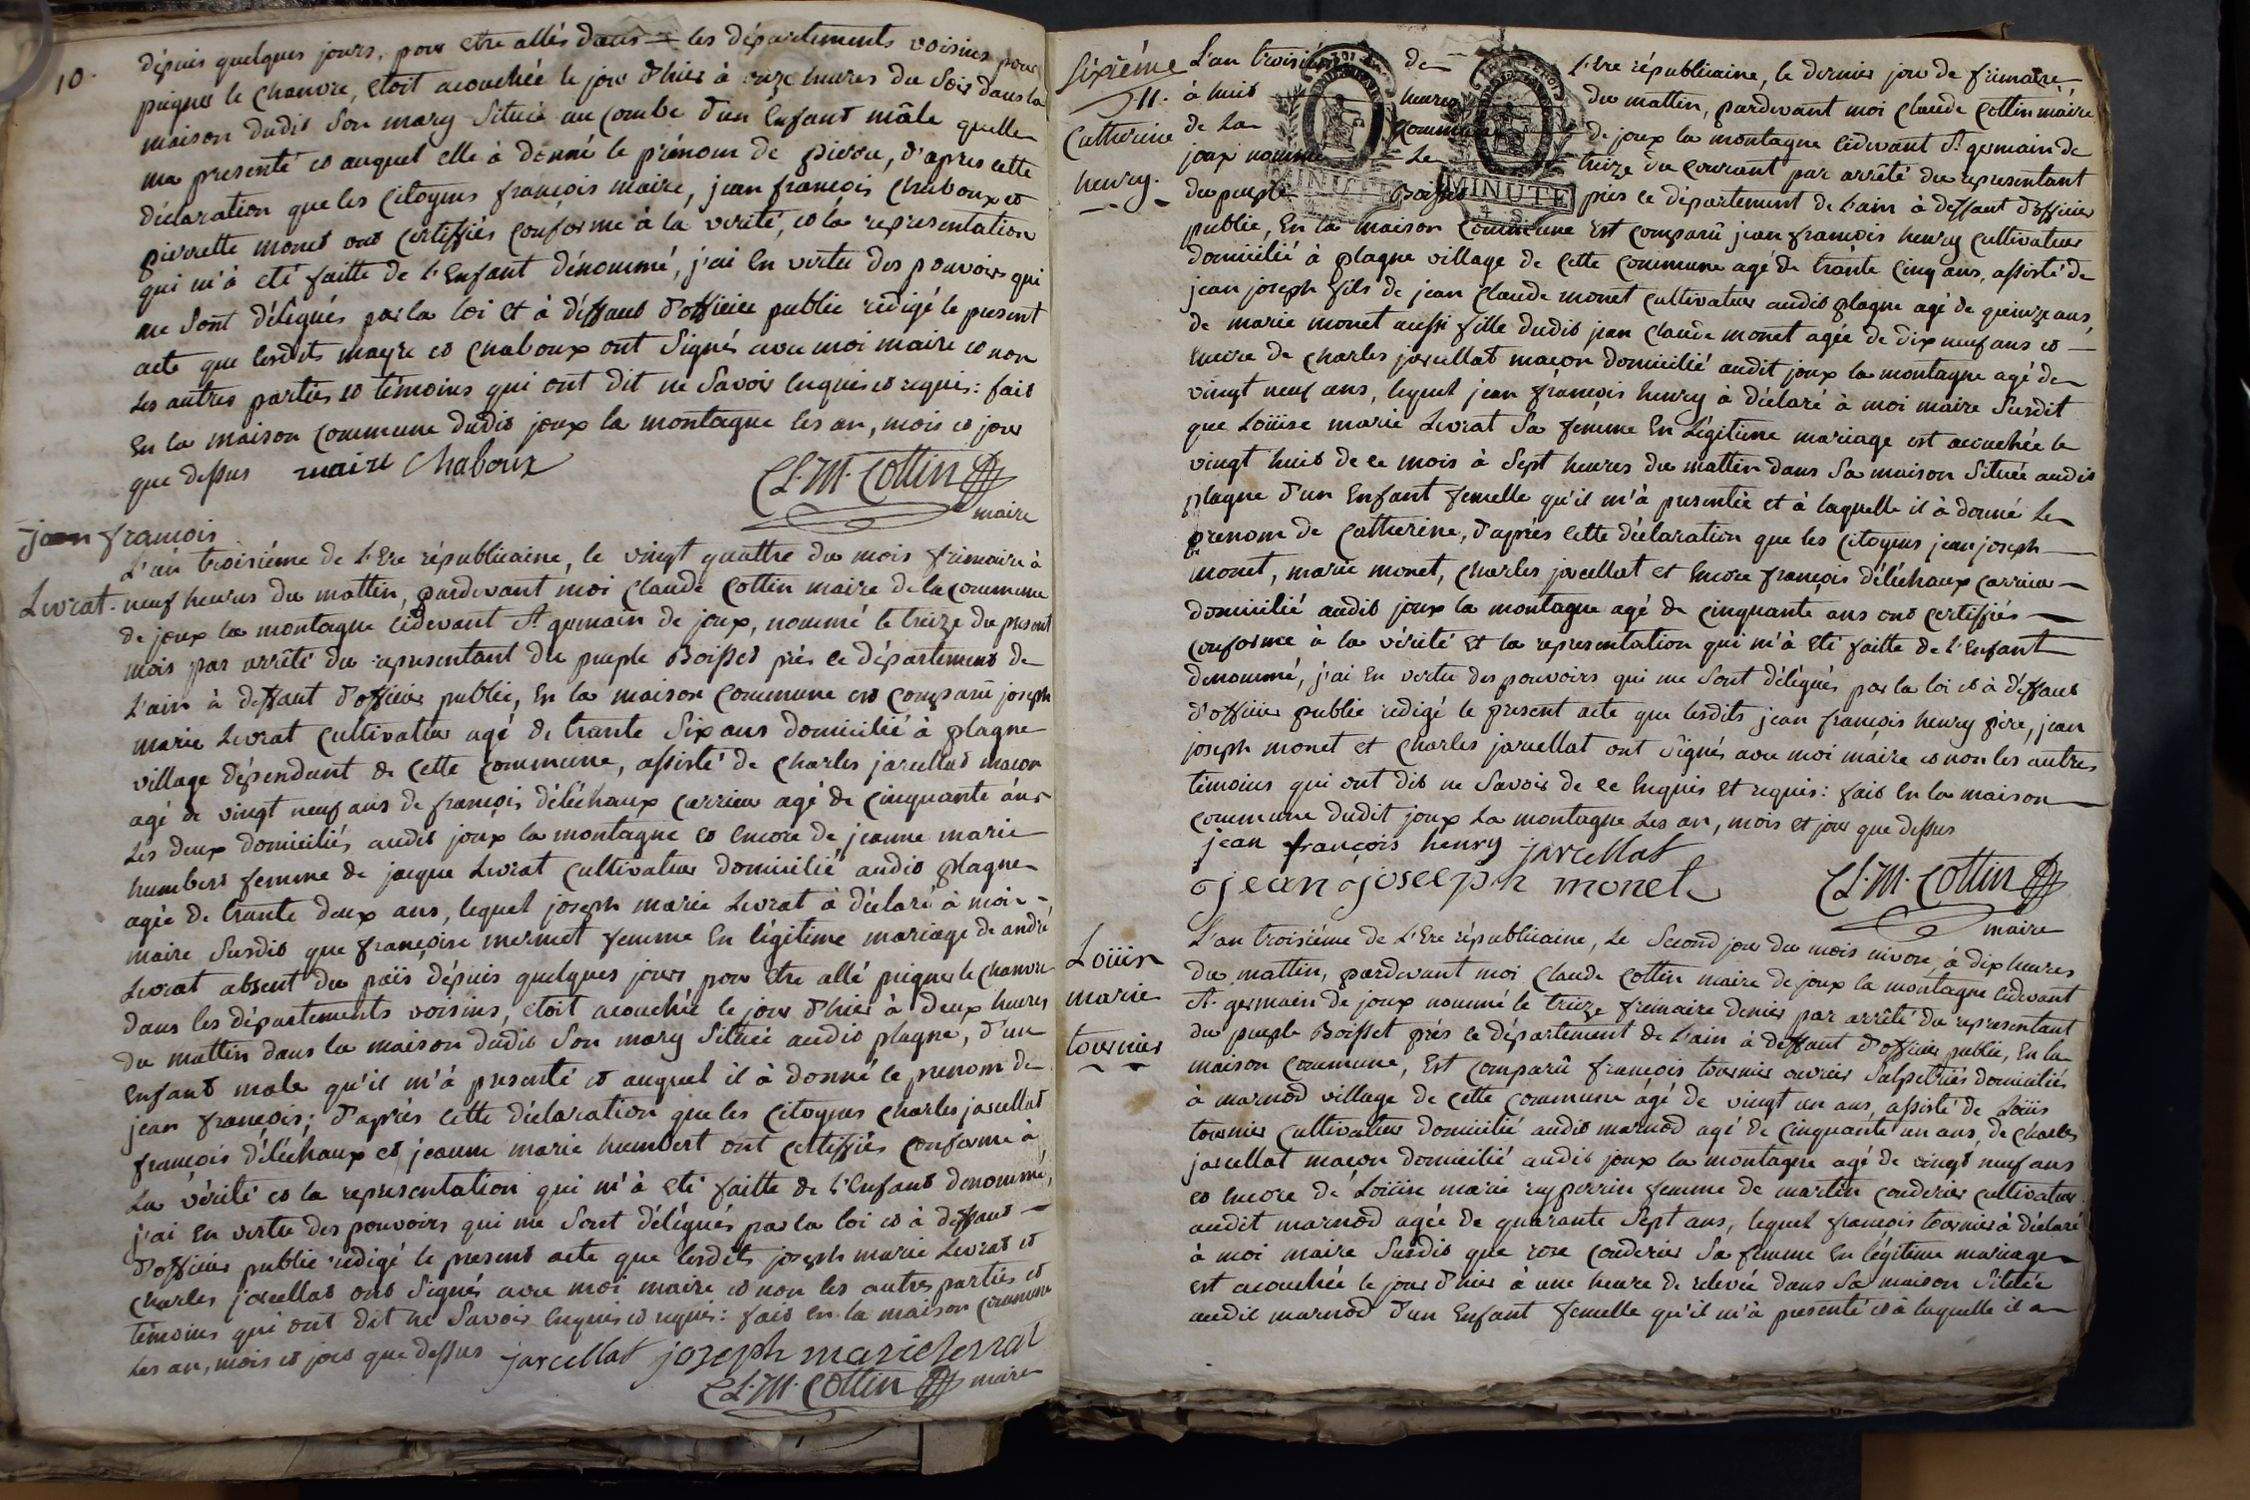 10.
dépuis quelques jours, pour etre allés dans les départements voisins pour
peigner le chanvre, etoit acouchée le jour d'hier à onze heures du soir dans la
maison dudit son mary située au combe d'un enfant mâle quelle
ma presenté et auquel elle à donné le prénom de pierre, d'apres cette
déclaration que les citoyens françois maire, jean françois chaboux et
pierrette monet ont certiffiés conforme à la verité, et la representation
qui m'à eté faitte de l'enfant dénommé, j'ai en vertu des pouvoirs qui
me sont délégués par la loi et à déffaut d'officier public rédigé le present
acte que lesdits mayre et chaboux ont signés avec moi maire et non
les autres parties et témoins qui ont dit ne savoir enquis et requis: fait
en la maison commune dudit joux la montagne les an, mois et jour
que dessus maire Chaboux
Cl. M. Cottin
maire
jean françois
Levrat.
L'an troisiéme de l'Ere républicaine, le vingt quattre du mois frimaire à
neuf heures du mattin, pardevant moi Claude Cottin maire de la commune
de joux la montagne cidevant St germain de joux, nommé le treize du present
mois par arrêté du representant du peuple Boisset prés ce département de
l'ain à deffaut d'officier public, en la maison commune est comparû joseph
marie Levrat cultivateur agé de trante six ans domicilié à plagne
village dépendant de cette commune, assisté de charles jarcellat macon
agé de vingt neuf ans de françois déléchaux carrier agé de cinquante ans
les deux domiciliés audit joux la montagne et encore de jeanne marie
humbert femme de jacque Levrat cultivateur domicilié audit plagne
agée de trante deux ans, lequel joseph marie Levrat à déclaré à moi
maire susdit que françoise mermet femme en légitime mariage de andré
Levrat absent du païs dépuis quelques jours pour etre allé peigner le chanvre
dans les départements voisins, etoit acouchée le jour d'hier à deux heures
du mattin dans la maison dudit son mary située audit plagne, d'un
enfant male qu'il m'à presenté et auquel il à donné le prenom de
jean françois; d'aprés cette déclaration que les citoyens charles jarcellat
françois déléchaux et jeanne marie humbert ont certiffiés conforme à
la vérité et la representation qui m'à eté faitte de l'enfant denommé,
j'ai en vertu des pouvoirs qui me sont délégués par la loi et à deffaut
d'officier public redigé le present acte que lesdits joseph marie Levrat et
charles jarcellat ont signés avec moi maire et non les autres parties et
témoins qui ont dit ne savoir enquis et requis: fait en la maison commune
les an, mois et jour que dessus jarcellat joseph marie levrat
Cl. M. Cottin maire
Sixiéme
11.
Catherine
henry.
L'an troisiéme de l'Ere républicaine, le dernier jour de frimaire
à huit heures du mattin, pardevant moi Claude Cottin maire
de la commune de joux la montagne cidevant St germain de
joux nommé le treize du courant par arrêté du representant
du peuple Boisset prés ce département de l'ain à deffaut d'officier
MINUTE
MINUTE
public, en la maison commune est comparû jean françois henry cultivateur
domicilié à plagne village de cette commune agé de trante cinq ans, assisté de
jean joseph fils de jean claude monet cultivateur audit plagne agé de quinze ans,
de marie monet aussi fille dudit jean claude monet agée de dix neuf ans et
encore de charles jarcellat macon domicilié audit joux la montagne agé de
vingt neuf ans, lequel jean françois henry à déclaré à moi maire susdit
que Loüise marie Levrat sa femme en légitime mariage est acouchée le
vingt huit de ce mois à sept heures du mattin dans sa maison située audit
plagne d'un enfant femelle qu'il m'à presentée et à laquelle il à donné le
prenom de catherine, d'aprés cette déclaration que les citoyens jean joseph
monet, marie monet, charles jarcellat et encore françois déléchaux carrier
domicilié audit joux la montagne agé de cinquante ans ont certiffiés
conforme à la vérité et la representation qui m'à eté faitte de l'enfant
denommé, j'ai en vertu des pouvoirs qui me sont délégués par la loi et à déffaut
d'officier public redigé le present acte que lesdits jean françois henry pére, jean
joseph monet et charles jarcellat ont signés avec moi maire et non les autres
témoins qui ont dit ne savoir de ce enquis et requis: fait en la maison
commune dudit joux la montagne les an, mois et jour que dessus
jean françois henry jarcellat
jean joseph monet Cl. M. Cottin
maire
Loüise
marie
tournier
L'an troisiéme de l'Ere républicaine, le second jour du mois nivose à dix heures
du mattin, pardevant moi Claude Cottin maire de joux la montagne cidevant
St germain de joux nommé le treize frimaire dernier par arrêté du representant
du peuple Boisset prés ce département de l'ain à deffaut d'officier public, en la
maison commune, est comparû françois tournier ouvrier salpetrier domicilié
à marnod village de cette commune agé de vingt un ans, assisté de Loüis
tournier cultivateur domicilié audit marnod agé de cinquante un ans, de charles
jarcellat maçon domicilié audit joux la montagne agé de vingt neuf ans
et encore de Loüise marie reyperrin femme de martin couderier cultivateur
audit marnod agée de quarante sept ans, lequel françois tournier à déclaré
à moi maire susdit que rose couderier sa femme en légitime mariage
est acouchée le jour d'hier à une heure de relevée dans sa maison située
audit marnod d'un enfant femelle qu'il m'à presenté et à laquelle il a